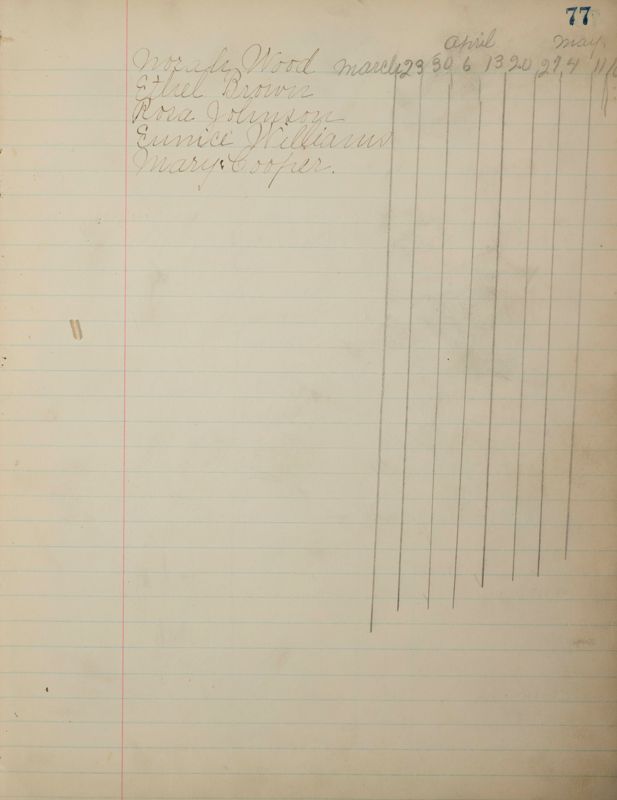 77
April May
Norah Wood March 23 30 6 13 20 27 4 11
Ethel Brown
Rosa Johnson
Eunice Williams
Mary Cooper.